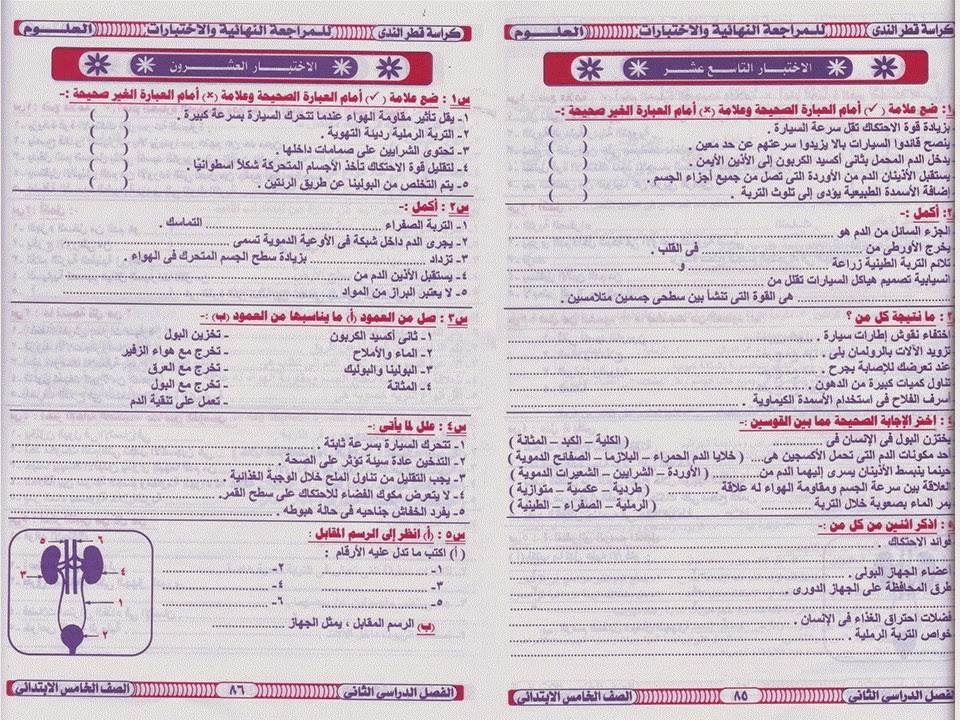 كراسة قطر الندى للمراجعة النهائية والاختبارات العلوم
الاختبار التاسع عشر
س١: ضع علامة (✓) أمام العبارة الصحيحة وعلامة (×) أمام العبارة الغير صحيحة:-
- بزيادة قوة الاحتكاك تقل سرعة السيارة . ( )
- ينصح قائدوا السيارات بالا يزيدوا سرعتهم عن حد معين . ( )
- يدخل الدم المحمل بثانى أكسيد الكربون إلى الأذين الأيمن . ( )
- يستقبل الأذينان الدم من الأوردة التى تصل من جميع أجزاء الجسم . ( )
- إضافة الأسمدة الطبيعية يؤدى إلى تلوث التربة . ( )
٢: أكمل :-
الجزء السائل من الدم هو ........
يخرج الأورطى من ........ فى القلب .
تلائم التربة الطينية زراعة ........ و ........
انسيابية تصميم هياكل السيارات تقلل من ........
........ هى القوة التى تنشأ بين سطحى جسمين متلامسين .
٣: ما نتيجة كل من ؟
اختفاء نقوش إطارات سيارة . ........
تزويد الآلات بالرولمان بلى . ........
عند تعرضك للإصابة بجرح . ........
تناول كميات كبيرة من الدهون . ........
أسرف الفلاح فى استخدام الأسمدة الكيماوية . ........
٤: اختر الإجابة الصحيحة مما بين القوسين :-
يختزن البول فى الإنسان فى ........ ( الكلية – الكبد – المثانة )
أحد مكونات الدم التى تحمل الأكسجين هى.... ( خلايا الدم الحمراء – البلازما – الصفائح الدموية )
حينما ينبسط الأذينان يسرى إليهما الدم من........ ( الأوردة – الشرايين – الشعيرات الدموية )
العلاقة بين سرعة الجسم ومقاومة الهواء له علاقة ........ ( طردية – عكسية – متوازية )
يمر الماء بصعوبة خلال التربة ........ ( الرملية – الصفراء – الطينية )
٥: اذكر اثنين من كل من :-
فوائد الاحتكاك ........
أعضاء الجهاز البولى . ........
طرق المحافظة على الجهاز الدورى . ........
فضلات احتراق الغذاء فى الإنسان . ........
خواص التربة الرملية . ........
الفصل الدراسي الثاني ٨٥ الصف الخامس الابتدائى
كراسة قطر الندى للمراجعة النهائية والاختبارات العلوم
الاختبار العشرون
س١: ضع علامة (✓) أمام العبارة الصحيحة وعلامة (×) أمام العبارة الغير صحيحة:-
١- يقل تأثير مقاومة الهواء عندما تتحرك السيارة بسرعة كبيرة . ( )
٢- التربة الرملية رديئة التهوية . ( )
٣- تحتوى الشرايين على صمامات داخلها . ( )
٤- لتقليل قوة الاحتكاك تأخذ الأجسام المتحركة شكلاً اسطوانيًا . ( )
٥- يتم التخلص من البولينا عن طريق الرئتين . ( )
س٢: أكمل :-
١- التربة الصفراء ........ التماسك .
٢- يجرى الدم داخل شبكة فى الأوعية الدموية تسمى ........
٣- تزداد ........ بزيادة سطح الجسم المتحرك فى الهواء .
٤- يستقبل الأذين الدم من ........
٥- لا يعتبر البراز من المواد ........
س٣: صل من العمود (أ) ما يناسبها من العمود (ب) :-
١- ثانى أكسيد الكربون - تخزين البول
٢- الماء والأملاح - تخرج مع هواء الزفير
٣- البولينا والبوليك - تخرج مع العرق
٤- المثانة - تخرج مع البول
- تعمل على تنقية الدم
س٤: علل لما يأتى :-
١- تتحرك السيارة بسرعة ثابتة . ........
٢- التدخين عادة سيئة تؤثر على الصحة ........
٣- يجب التقليل من تناول الملح خلال الوجبة الغذائية . ........
٤- لا يتعرض مكوك الفضاء للاحتكاك على سطح القمر. ........
٥- يفرد الخفاش جناحيه فى حالة هبوطه . ........
س٥: (أ) انظر إلى الرسم المقابل :
(أ) اكتب ما تدل عليه الأرقام :
١- ........ ٢- ........
٣- ........ ٤- ........
٥- ........ ٦- ........
(ب) الرسم المقابل ، يمثل الجهاز ........
٥ ٦
٣ ٤
١
٢
الفصل الدراسي الثاني ٨٦ الصف الخامس الابتدائى